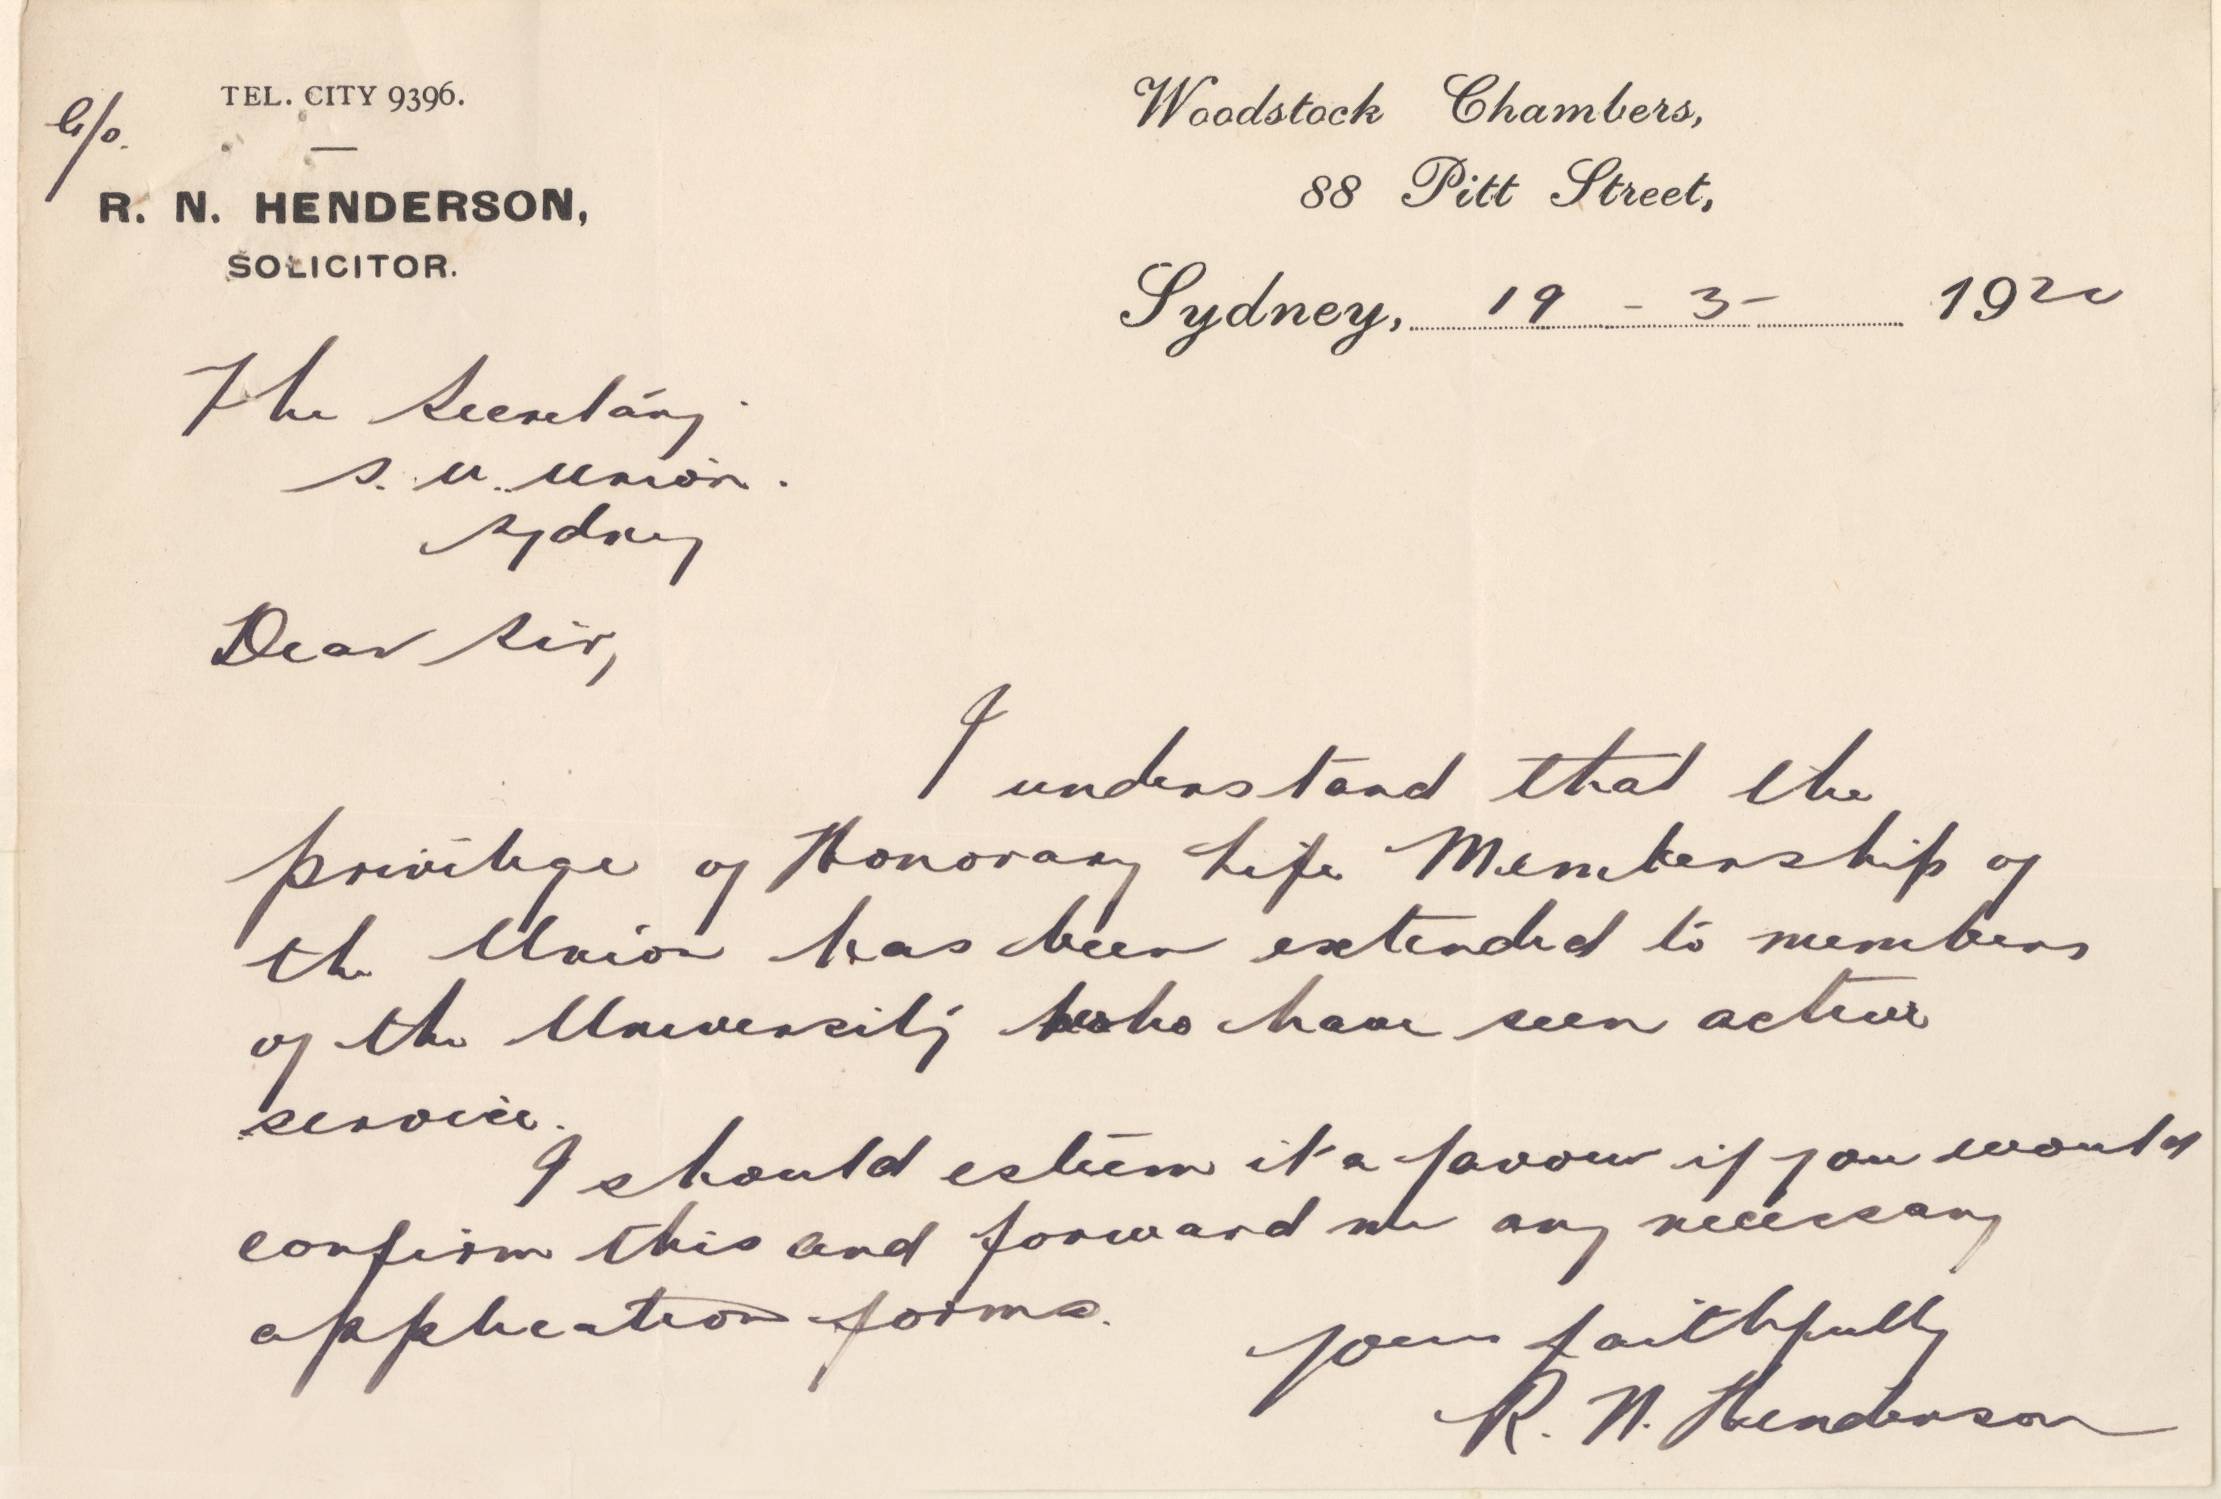 TEL. CITY 9396.
C/o.
R. N. HENDERSON,
SOLICITOR.
Woodstock Chambers,
88 Pitt Street,
Sydney, 19 - 3 - 192
The Secretary.
S. U. Union.
Sydney
Dear Sir,
I understand that the
privilege of Honorary Life Membership of
the Union has been extended to members
of the University who have seen active
service.
I should esteem it a favour if you would
confirm this and forward me any necessary
application forms.
Yours faithfully
R. N. Henderson